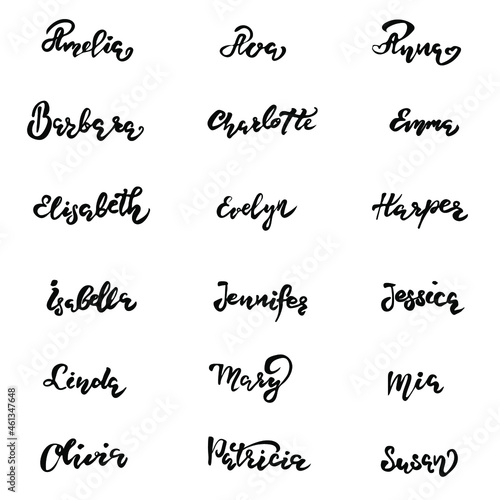 Amelia Ava Anna
Barbara Charlotte Emma
Elisabeth Evelyn Harper
Isabella Jennifer Jessica
Linda Mary Mia
Olivia Patricia Susan
Adobe Stock | #461347648